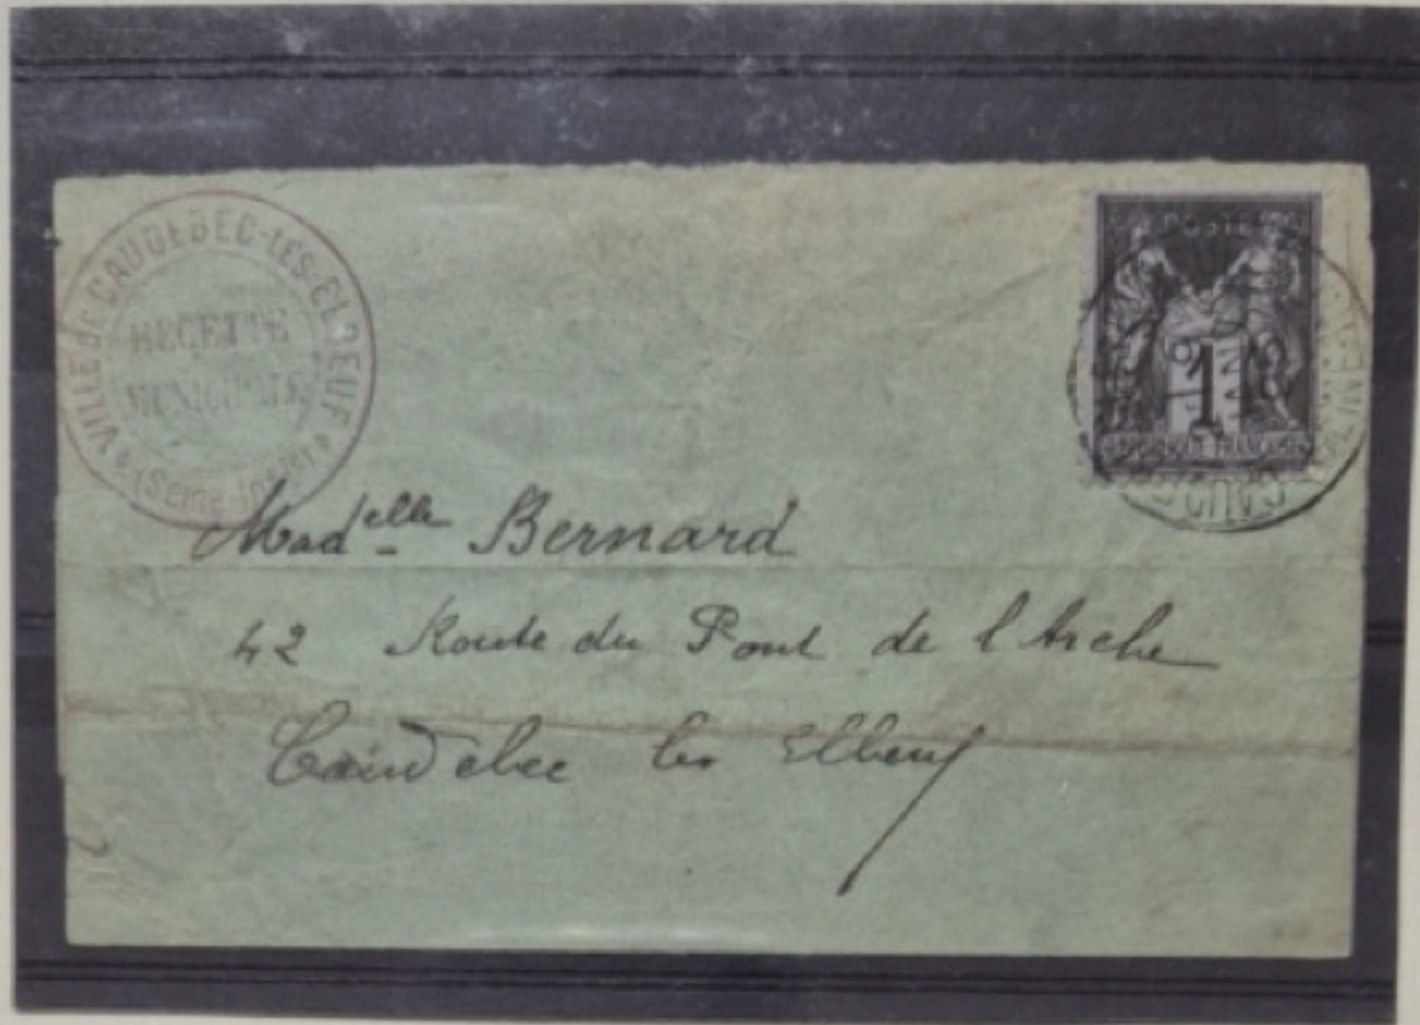 VILLE de CAUDEBEC-LES-ELBEUF
RECETTE
MUNICIPALE
(Seine-Infre)
POSTES
1
REPUBLIQUE FRANCAISE
Madelle Bernard
42 Route du Pont de l'Arche
Caudebec les Elbeuf